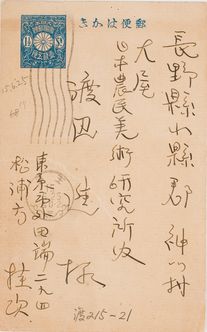 郵便はかき
長野縣小縣郡神川村
大屋
日本農民美術研究所内
渡辺進様
東京市外田端二九四
松浦方
桂次
渡215~21